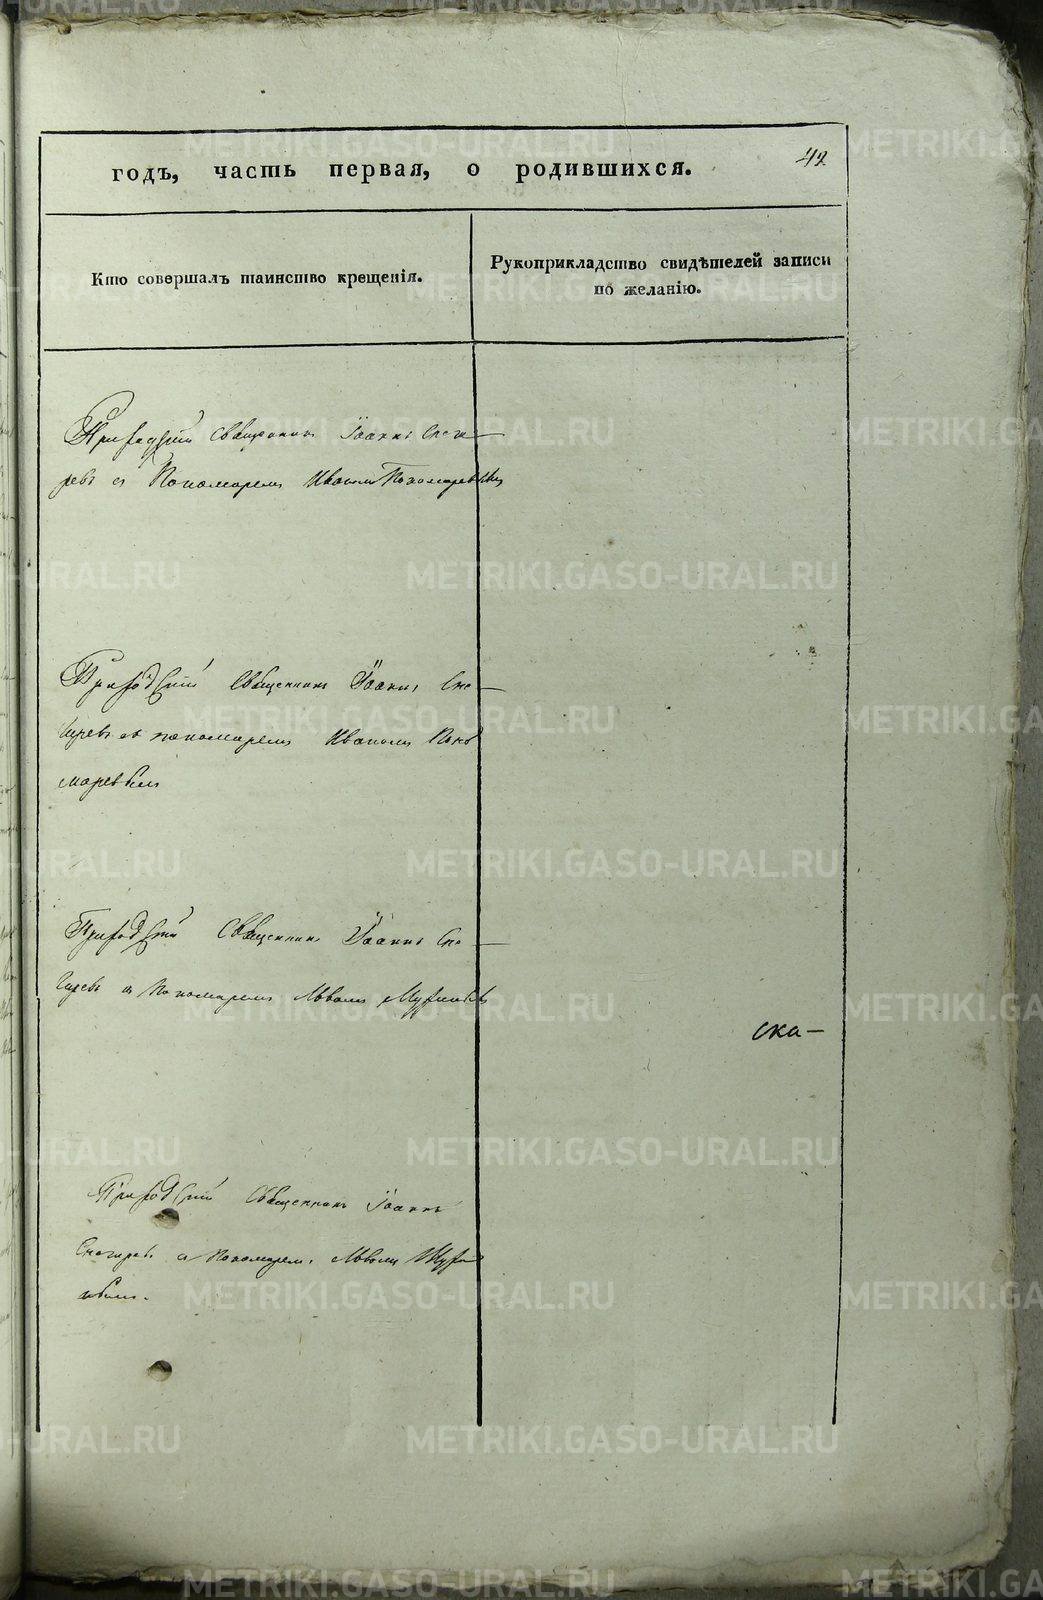 42
годъ, часть первая, о родившихся.
Кто совершалъ таинство крещенія.
Рукоприкладство свидѣтелей записи
по желанію.
Приходскій священникъ Іоаннъ Снеги-
ревъ съ Пономаремъ Иваномъ Пономаревымъ
Приходскій Священникъ Іоаннъ Сне-
гиревъ съ пономаремъ Иваномъ Поно
маревымъ
Приходскій Священникъ Іоаннъ Сне-
гиревъ съ Пономаремъ Львомъ
ска-
Приходскій Священникъ Іоаннъ
Снегиревъ съ Пономаремъ Львомъ
METRIKI.GASO-URAL.RU